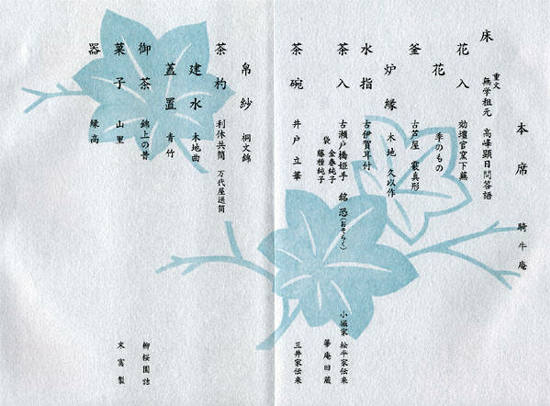 本席　騎牛庵
床　重文　無学祖元　高峰顕日問答語
花入　効壇官窯下蕪
花　季のもの
釜　古芦屋　霰真形
炉縁　木地　久以作
水指　古伊賀耳付
茶入　古瀬戸橋姫手　銘　恐（おそらく）　小堀家　松平家伝来
袋　金春純子　藤種純子　箒庵旧蔵
茶碗　井戸　立華　三井家伝来
帛紗　桐文錦
茶杓　利休共筒　万代屋道箇
建水　木地曲
蓋置　青竹
御茶　錦上の昔　柳桜園詰
菓子　山里　末富製
器　縁高